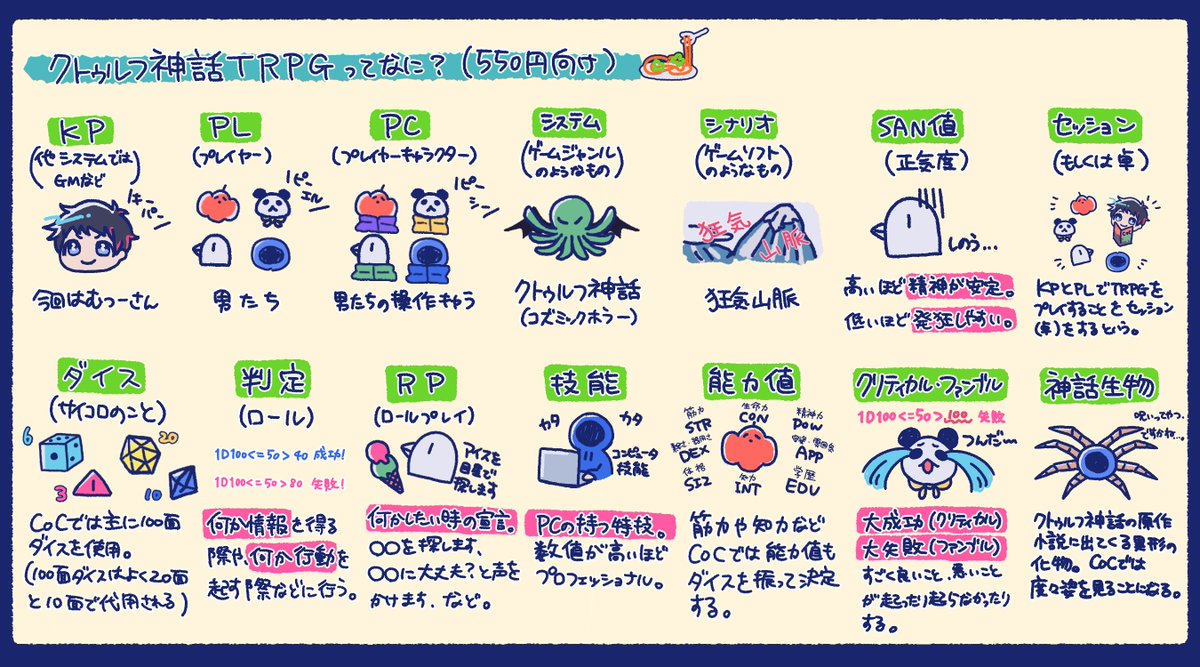 クトゥルフ神話TRPGってなに?(550円向け)
KP
(他システムでは
GMなど)
キーパン
今回はむつーさん
PL
(プレイヤー)
ピーエル
男たち
PC
(プレイヤーキャラクター)
ピーシー
男たちの操作キャラ
システム
(ゲームジャンル
のようなもの)
クトゥルフ神話
(コズミックホラー)
シナリオ
(ゲームソフト
のようなもの)
狂気
山脈
狂気山脈
SAN値
(正気度)
しのう...
高いほど精神が安定。
低いほど発狂しやすい。
セッション
(もしくは卓)
KPとPLでTRPGを
プレイすることをセッション
(卓)をするという。
ダイス
(サイコロのこと)
6
20
3
10
CoCでは主に100面
ダイスを使用。
(100面ダイスはよく20面
と10面で代用される)
判定
(ロール)
1D100<=50>40 成功!
1D100<=50>80 失敗!
何か情報を得る
際や、何か行動を
起す際などに行う。
RP
(ロールプレイ)
アイスを
目星で
探します
何かしたい時の宣言。
〇〇を探します、
〇〇に大丈夫?と声を
かけます、など。
技能
カタ
カタ
コンピュータ
技能
PCの持つ特技。
数値が高いほど
プロフェッショナル。
能力値
筋力
STR
生命力
CON
精神力
POW
DEX
APP
体格
SIZ
知力
INT
学歴
EDU
筋力や知力など
CoCでは能力値も
ダイスを振って決定
する。
クリティカル・ファンブル
1D100<=50>100 失敗
つんだ〜
大成功(クリティカル)
大失敗(ファンブル)
すごく良いこと、悪いこと
が起ったり起らなかったり
する。
神話生物
呪いってやつ...
ですかね...
クトゥルフ神話の原作
小説に出てくる異形の
化物。CoCでは
度々姿を見ることになる。